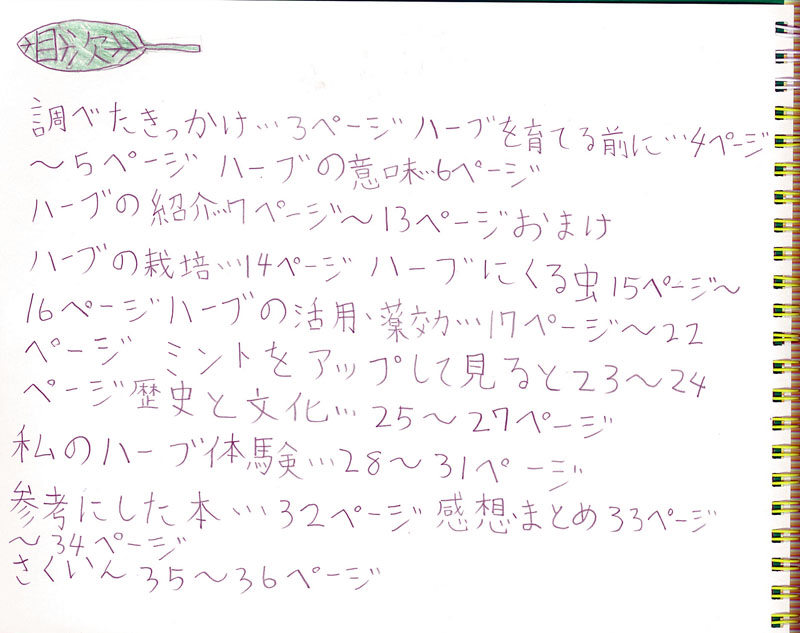 目次
調べたきっかけ…3ページ ハーブを育てる前に…4ページ
〜5ページ ハーブの意味…6ページ
ハーブの紹介…7ページ〜13ページおまけ
ハーブの栽培…14ページ ハーブにくる虫15ページ〜
16ページハーブの活用、薬効…17ページ〜22
ページ ミントをアップして見ると23〜24
ページ歴史と文化…25〜27ページ
私のハーブ体験…28〜31ページ
参考にした本…32ページ 感想まとめ33ページ
〜34ページ
さくいん35〜36ページ